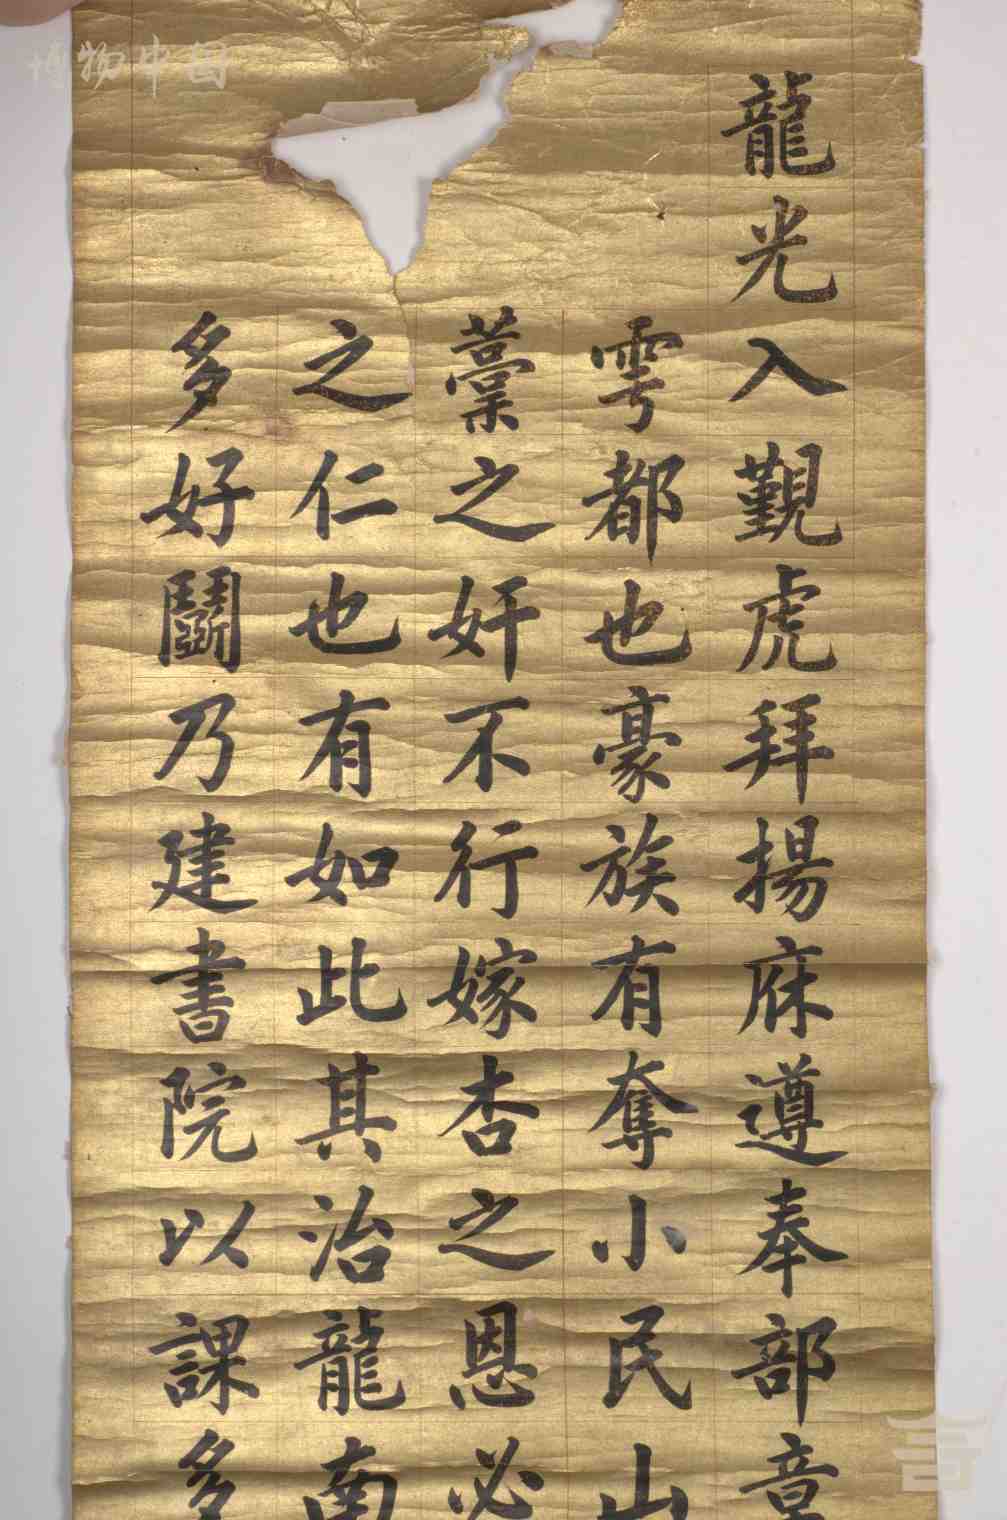 博物中国
龍光入覲虎拜揚庥遵奉部章
雩都也豪族有奪小民山
藁之奸不行嫁杏之恩必
之仁也有如此其治龍南
多好鬭乃建書院以課多